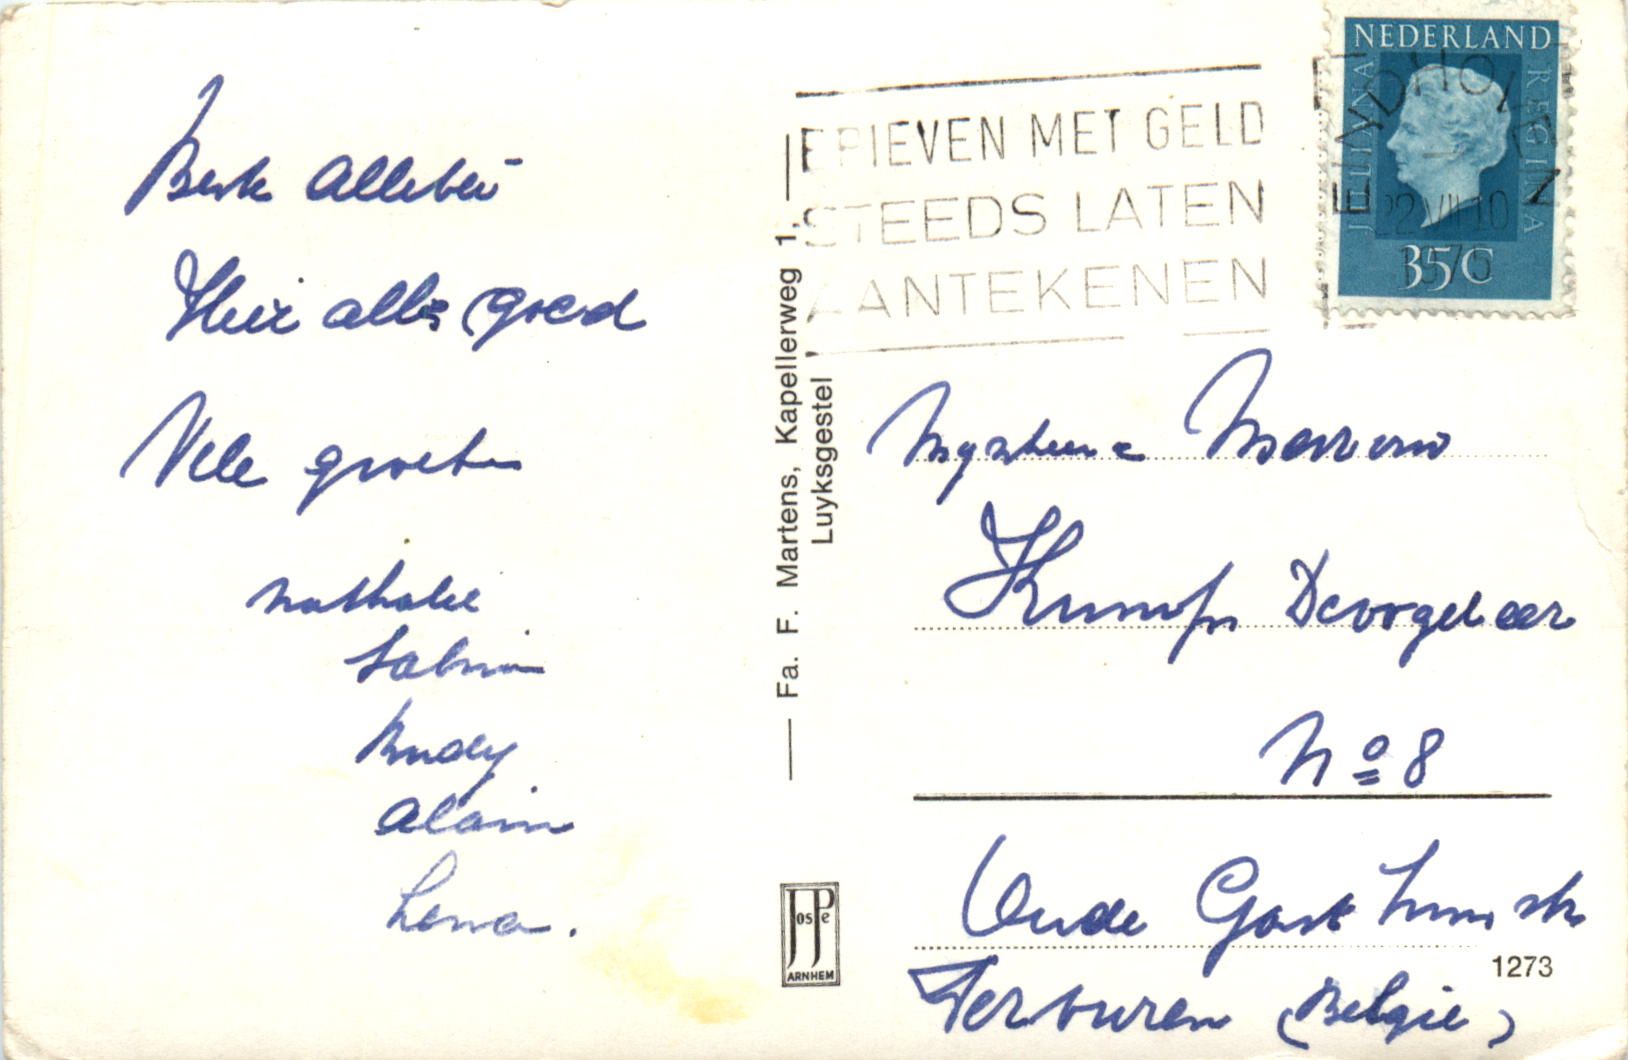 Beste Allebei
Hier alles goed
Vele groeten
Nathalie
Sabrina
Rudy
Alain
Lena.
Fa. F. Martens, Kapellerweg 1,
Luyksgestel
JosPe
ARNHEM
BRIEVEN MET GELD
STEEDS LATEN
AANTEKENEN
NEDERLAND
JULIANA
REGINA
35 C
EINDHOVEN
22 VII 10
Kumps Devogelaer
No 8
Oude
1273
Tervuren (Belgie)